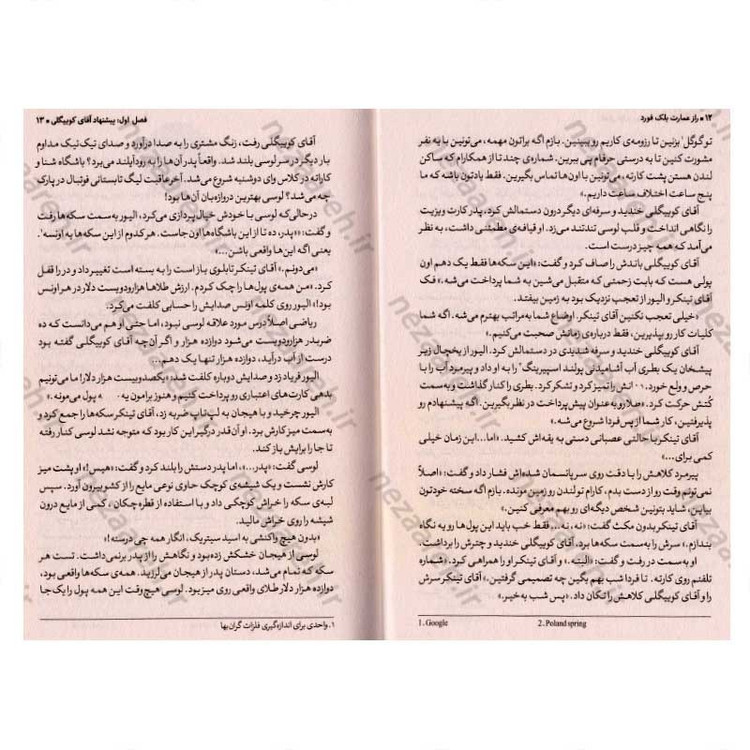 ۱۲ • راز عمارت بلک فورد
تو گوگل¹ بزنین تا رزومه‌ی کاریم رو ببینین. بازم اگه براتون مهمه، می‌تونین با یه نفر
مشورت کنین تا به درستی حرفام پی ببرین. شماره‌ی چند تا از همکارام که ساکن
لندن هستن پشت کارته، می‌تونین با اون‌ها تماس بگیرین. فقط یادتون باشه که ما
پنج ساعت اختلاف ساعت داریم.»
آقای کوبیگلی خندید و سرفه‌ای دیگر درون دستمالش کرد. پدر کارت ویزیت
را نگاهی انداخت و قلب لوسی تندتند می‌زد. او قیافه‌ی مطمئنی داشت، به نظر
می‌آمد که همه چیز درست است.
آقای کوبیگلی باندش را صاف کرد و گفت: «این سکه‌ها فقط یک دهم اون
پولی هست که بابت زحمتی که متقبل می‌شین به شما پرداخت می‌شه.» فک
آقای تینکر و الیور از تعجب نزدیک بود به زمین بیفتد.
«خیلی تعجب نکنین آقای تینکر. اوضاع شما به‌مراتب بهترم می‌شه. اگه شما
کلیات کار رو بپذیرین، فقط درباره‌ی زمانش صحبت می‌کنیم.»
آقای کوبیگلی خندید و سرفه شدیدی در دستمالش کرد. الیور از یخچال زیر
پیشخان یک بطری آب آشامیدنی پولند اسپیرینگ² را به او داد و پیرمرد آب را با
حرص و ولع خورد. آنش را تمیز کرد و تشکر کرد. بطری را کنار گذاشت و به‌سمت
کُتش حرکت کرد. «صلا رو به‌عنوان پیش‌پرداخت در نظر بگیرین. اگه پیشنهادم رو
پذیرفتین، کار شما از پس فردا شروع می‌شه.»
آقای تینکر با حالتی عصبانی دستی به یقه‌اش کشید. «اما... این زمان خیلی
کمی برای...»
پیرمرد کلاهش را با دقت روی سر پانسمان شده‌اش فشار داد و گفت: «اصلاً
نمی‌تونم وقت رو از دست بدم. کارام تو لندن رو زمین مونده. بازم اگه سخته خودتون
بیاین، شاید بتونین شخص دیگه‌ای رو بهم معرفی کنین.»
آقای تینکر بدون مکث گفت: «نه، نه... فقط خب باید این پول‌ها رو یه نگاه
بندازم.» سرش را به سمت سکه‌ها برد. آقای کوبیگلی خندید و چترش را برداشت.
او به سمت در رفت و گفت: «البته.» و آقای تینکر او را همراهی کرد. «شماره
تلفنم روی کارته. تا فردا شب بهم بگین چه تصمیمی گرفتین.» آقای تینکر سرش
را و آقای کوبیگلی کلاهش را تکان داد. «پس شب به‌خیر.»
1. Google 2. Poland spring
فصل اول: پیشنهاد آقای کوبیگلی • ۱۳
آقای کوبیگلی رفت، زنگ مشتری را به صدا درآورد و صدای تیک‌تیک مداوم
بار دیگر در سر لوسی بلند شد. واقعاً پدر آن‌ها را به رودآیلند می‌برد؟ باشگاه شنا و
کاراته در کلاس وای دوشنبه شروع می‌شد. آخر عاقبت لیگ تابستانی فوتبال در پارک
چه می‌شد؟ لوسی بهترین دروازه‌بان آن‌ها بود!
درحالی‌که لوسی با خودش خیال‌پردازی می‌کرد، الیور به‌سمت سکه‌ها رفت
و گفت: «پدر، ده تا از این باشگاه‌ها اون جاست. هر کدوم از این سکه‌ها یه اونسه¹.
یعنی اگه این‌ها واقعی باشن...»
«می‌دونم.» آقای تینکر تابلوی باز است را به بسته است تغییر داد و در را قفل
کرد. «من همه‌ی پول‌ها را چک کردم. ارزش طلاها هزارودویست دلار در هر اونس
بود!» الیور روی کلمه اونس صدایش را حسابی کلفت می‌کرد.
ریاضی اصلاً درس مورد علاقه لوسی نبود، اما حتی او هم می‌دانست که ده
ضربدر هزارودویست می‌شود دوازده هزار و اگر آن‌چه آقای کوبیگلی گفته بود
درست از آب درآید، دوازده هزار تنها یک دهم...
الیور فریاد زد و صدایش دوباره کلفت شد: «یکصدوبیست هزار دلار! ما می‌تونیم
بدهی کارت‌های اعتباری رو پرداخت کنیم و هنوز برامون یه پول می‌مونه.»
الیور چرخید و با هیجان به لپ‌تاپ ضربه زد. آقای تینکر سکه‌ها را جمع کرد و
به‌سمت میز کارش برد. او آن‌قدر درگیر این کار بود که متوجه نشد لوسی کنار رفته
تا جا را برایش باز کند.
لوسی گفت: «پدر...»، اما پدر دستش را بلند کرد و گفت: «هیس!» او پشت میز
کارش نشست و یک شیشه‌ی کوچک حاوی نوعی مایع را از کشو بیرون آورد. سپس
لبه‌ی سکه را خراش کوچکی داد و با استفاده از قطره‌چکان، کمی از مایع درون
شیشه را روی خراش مالید.
«بدون هیچ واکنشی به اسید سیتریک. انگار همه چی درسته!»
لوسی از هیجان خشکش زده بود و نگاهش را از پدر برنمی‌داشت. تست هر
سکه که تمام می‌شد، دستان پدر از هیجان می‌لرزید. همه‌ی سکه‌ها واقعی بود،
دوازده هزار دلار طلای واقعی روی میز بود. لوسی هیچ‌وقت این همه پول را یک‌جا
۱. واحدی برای اندازه‌گیری فلزات گران‌بها
nezaareh.ir